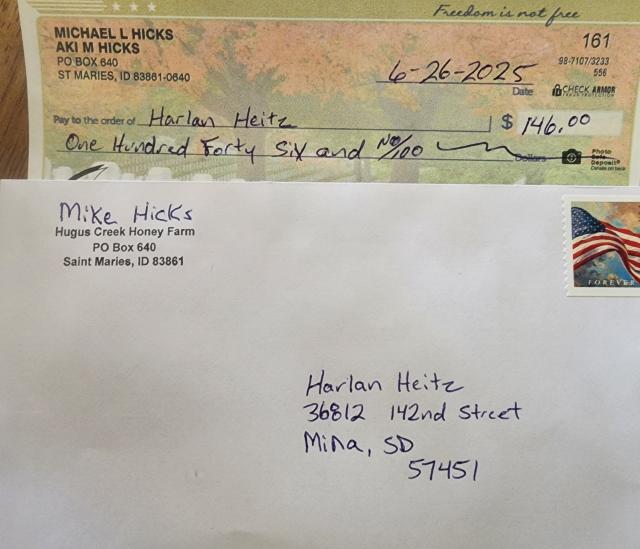 Freedom is not free
MICHAEL L HICKS
AKI M HICKS
PO BOX 640
ST MARIES, ID 83861-0640
161
98-7107/3233
556
6-26-2025
Date
CHECK ARMOR
Pay to the order of Harlan Heitz $ 146.00
One Hundred Forty Six and No/100 Dollars
Photo
Safe
Deposit®
Details on back
Mike Hicks
Hugus Creek Honey Farm
PO Box 640
Saint Maries, ID 83861
FOREVER
Harlan Heitz
36812 142nd Street
Mina, SD
57451